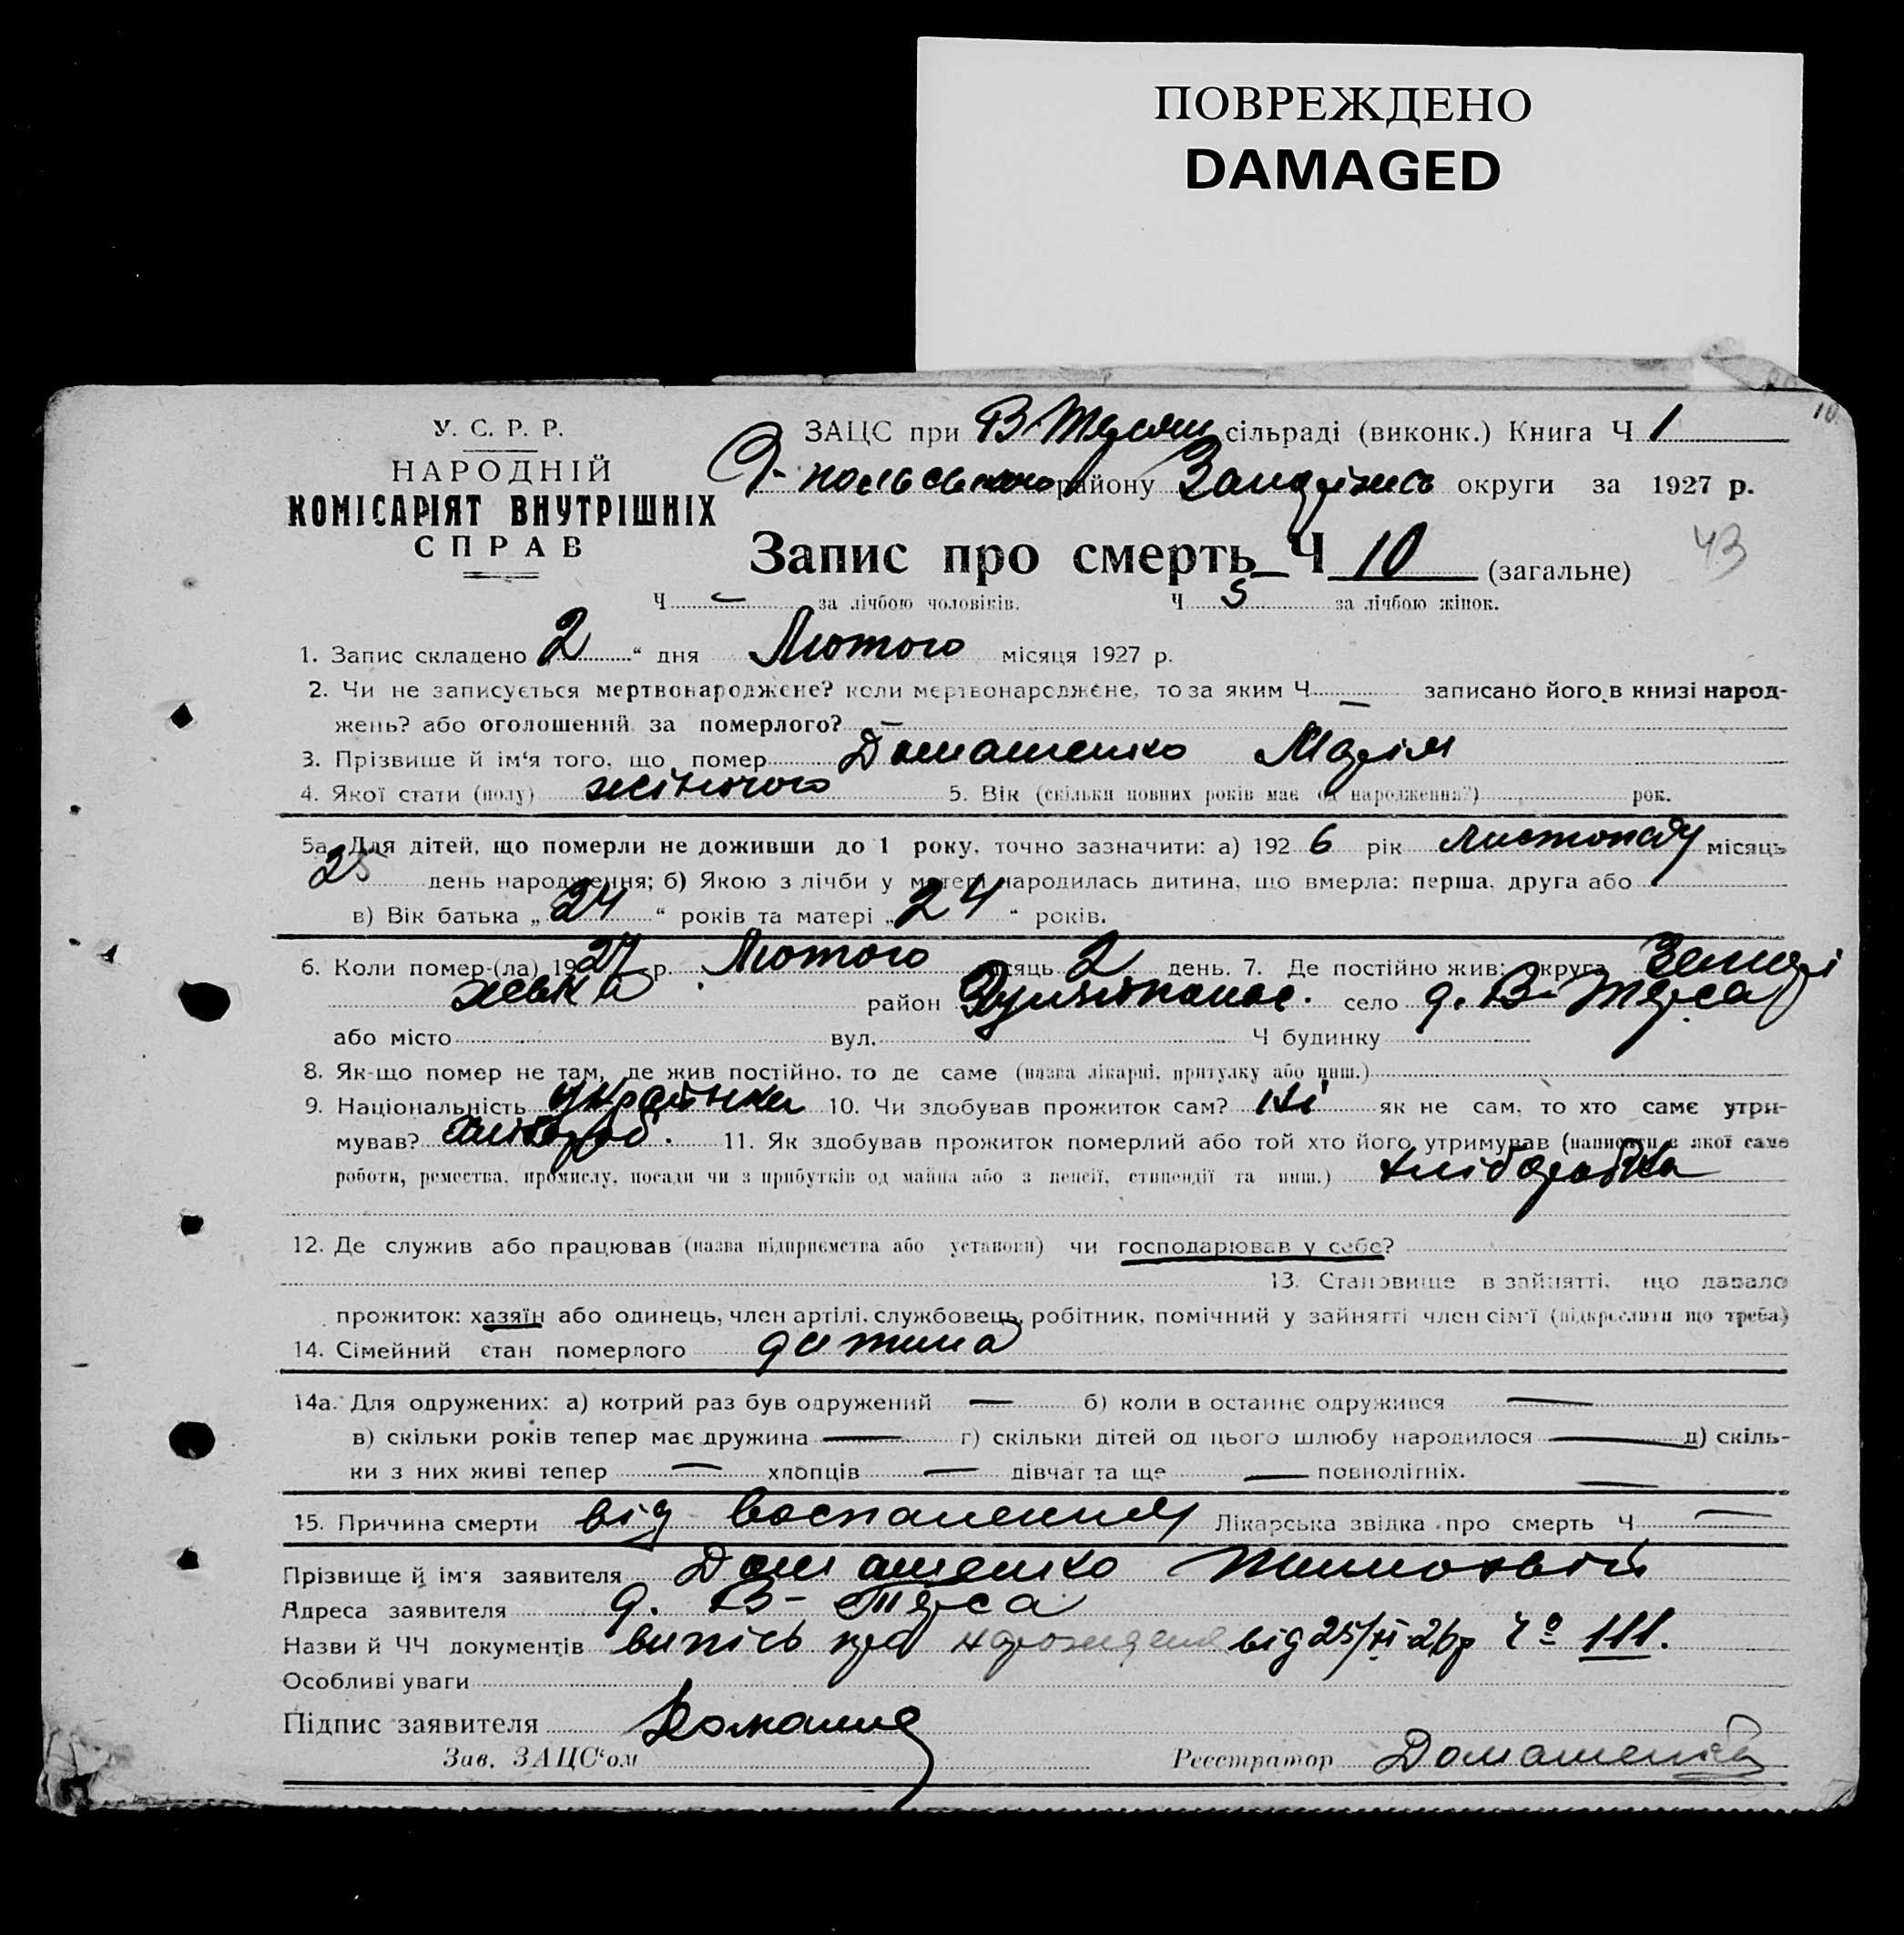 ПОВРЕЖДЕНО
DAMAGED
10.
У. С. Р. Р.
НАРОДНІЙ
КОМІСАРІЯТ ВНУТРІШНІХ
СПРАВ
ЗАЦС при В-Терсян сільраді (виконк.) Книга Ч 1
району округи за 1927 р.
Запис про смерть Ч 10 (загальне)
43
Ч — за лічбою чоловіків. Ч 5 за лічбою жінок.
1. Запис складено „2“ дня Лютого місяця 1927 р.
2. Чи не записується мертвонароджене? коли мертвонароджене, то за яким Ч — записано його в книзі народ-
жень? або оголошений за померлого? —
3. Прізвище й ім'я того, що помер Домашенко Марія
4. Якої стати (полу) жіночого 5. Вік (скільки повних років має од народження?) рок.
5а. Для дітей, що померли не доживши до 1 року, точно зазначити: а) 1926 рік листопаду місяць
25 день народження; б) Якою з лічби у матері народилась дитина, що вмерла: перша, друга або
в) Вік батька „24“ років та матері „24“ років.
6. Коли помер-(ла) 1927 р. Лютого місяць 2 день. 7. Де постійно жив: округа Запорі
жська район Гуляйпольс. село д. В-Терса
або місто вул. Ч будинку
8. Як-що помер не там, де жив постійно, то де саме (назва лікарні, притулку або инш.)
9. Національність Українка 10. Чи здобував прожиток сам? Ні як не сам, то хто саме утри-
мував? хлібороб. 11. Як здобував прожиток померлий або той хто його утримував (написати з якої саме
роботи, ремества, промислу, посади чи з прибутків од майна або з пенсії, стипендії та инш.) хліборобства
12. Де служив або працював (назва підприємства або установи) чи господарював у себе?
13. Становище в зайнятті, що давало
прожиток: хазяїн або одинець, член артілі, службовець, робітник, помічний у зайнятті член сім'ї (підкреслити що треба)
14. Сімейний стан померлого дитина
14а. Для одружених: а) котрий раз був одружений — б) коли в останнє одружився —
в) скільки років тепер має дружина — г) скільки дітей од цього шлюбу народилося — д) скіль-
ки з них живі тепер — хлопців — дівчат та ще — повнолітніх. —
15. Причина смерти від воспаления Лікарська звідка про смерть Ч —
Прізвище й ім'я заявителя Домашенко Тимофій
Адреса заявителя д. В-Терса
Назви й ЧЧ документів випісь про від 25/XI-26р Ч° 111.
Особливі уваги
Підпис заявителя
Зав. ЗАЦС'ом Реєстратор Домашенко